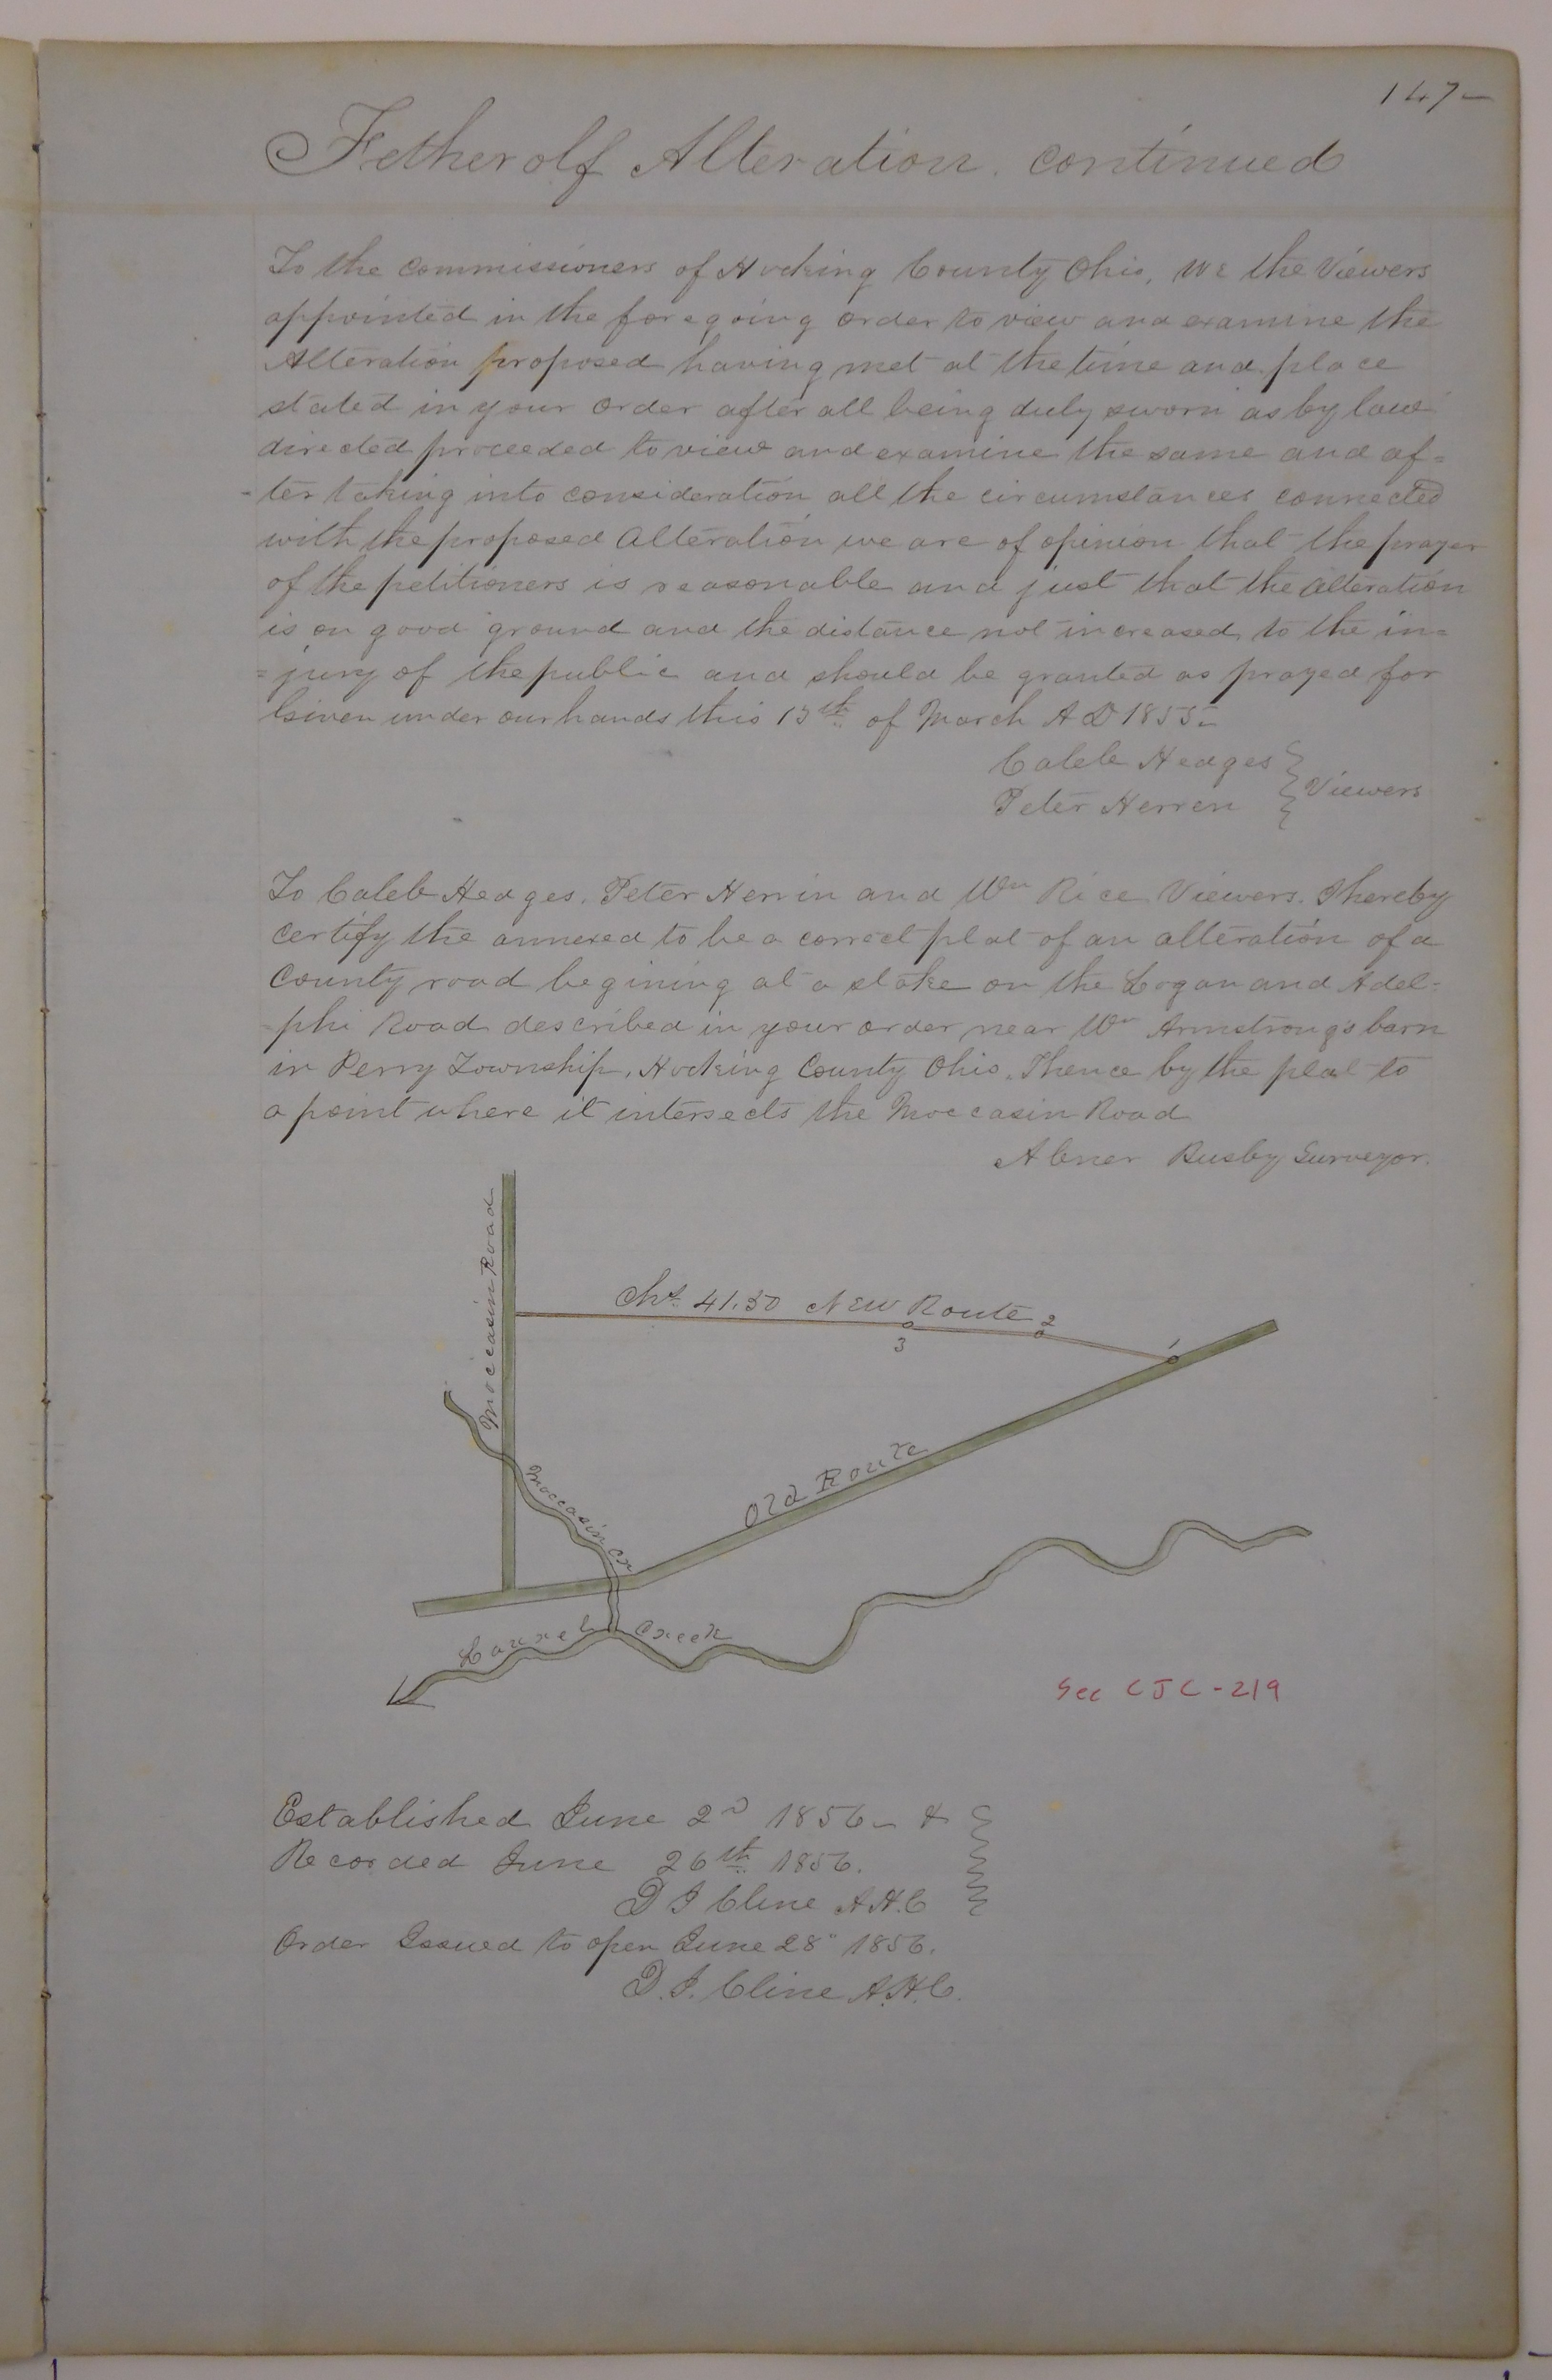 147-
Fetherolf Alteration. continued
To the Commissioners of Hocking County Ohio, We the Viewers
appointed in the foregoing order to view and examine the
Alteration proposed having met at the time and place
stated in your order after all being duly sworn as by law
directed proceeded to view and examine the same and af=
ter taking into consideration all the circumstances connected
with the proposed Alteration we are of opinion that the prayer
of the petitioners is reasonable and just that the alteration
is on good ground and the distance not increased to the in=
=jury of the public and should be granted as prayed for
Given under our hands this 15th of March A D 1855-
Caleb Hedges
Peter Herren } Viewers
To Caleb Hedges, Peter Herrin and Wm Rice Viewers. I hereby
certify the annexed to be a correct plat of an alteration of a
County road begining at a stake on the Logan and Adel-
-phi Road described in your order near Wm Armstrongs barn
in Perry Township, Hocking County Ohio. Thence by the plat to
a point where it intersects the Moccasin Road
Abner Busby Surveyor.
Moccasin Road
Chs. 41.50 New Route
2
3
1
Moccasin Cr
Old Route
Laurel Creek
See CJC-219
Established June 2d 1856- &
Recorded June 26th 1856.
D J Cline A.H.C
Order Issued to open June 28" 1856.
D. J. Cline A.H.C.